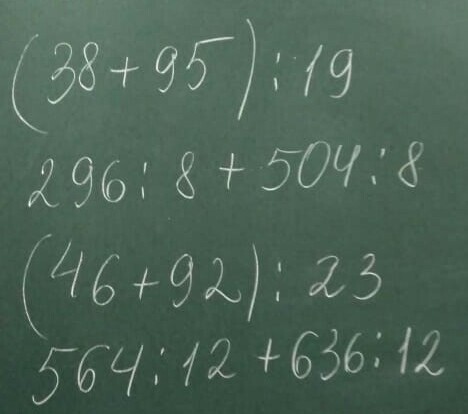 (38+95):19
296:8+504:8
(46+92):23
564:12+636:12